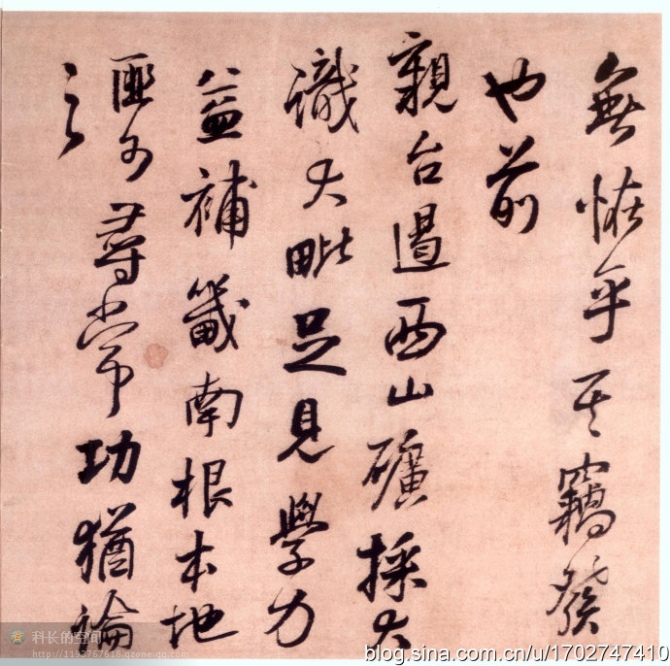 無恠乎其竊發
也前
親台遏西山礦採大
識大毗足見學力
益補畿南根本地
匪可尋常功猶論
之
科长的空间
blog.sina.com.cn/u/1702747410